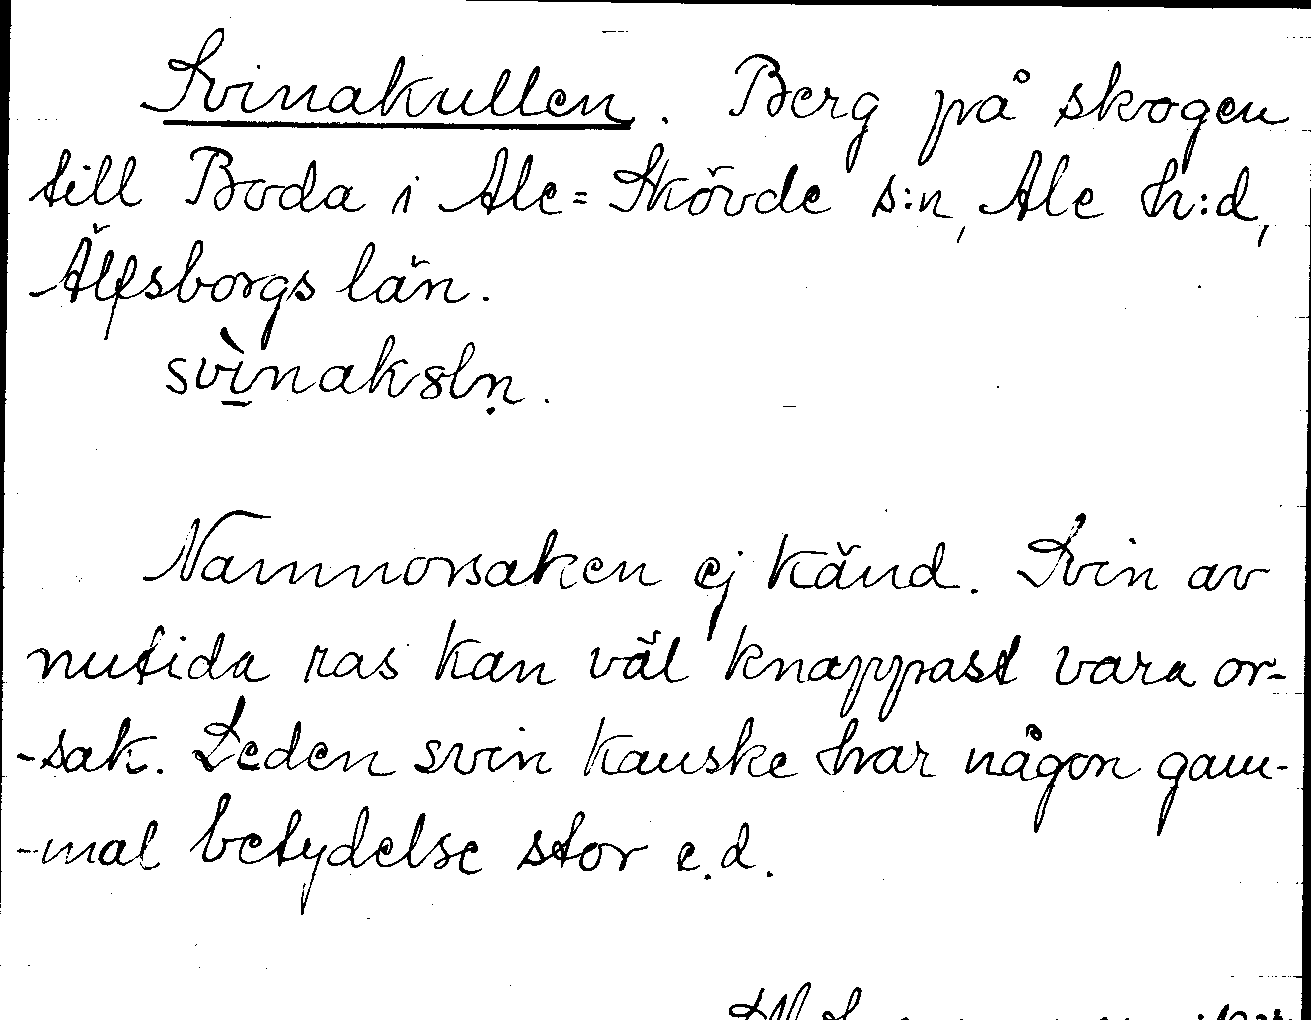 Svinakullen. Berg på skogen
till Boda i Ale=Skövde s:n, Ale h:d,
Älfsborgs län.
svìnaksln̥.
Namnorsaken ej känd. Svin av
nutida ras kan väl knappast vara or-
-sak. Leden svin kanske har någon gam-
-mal betydelse stor e.d.